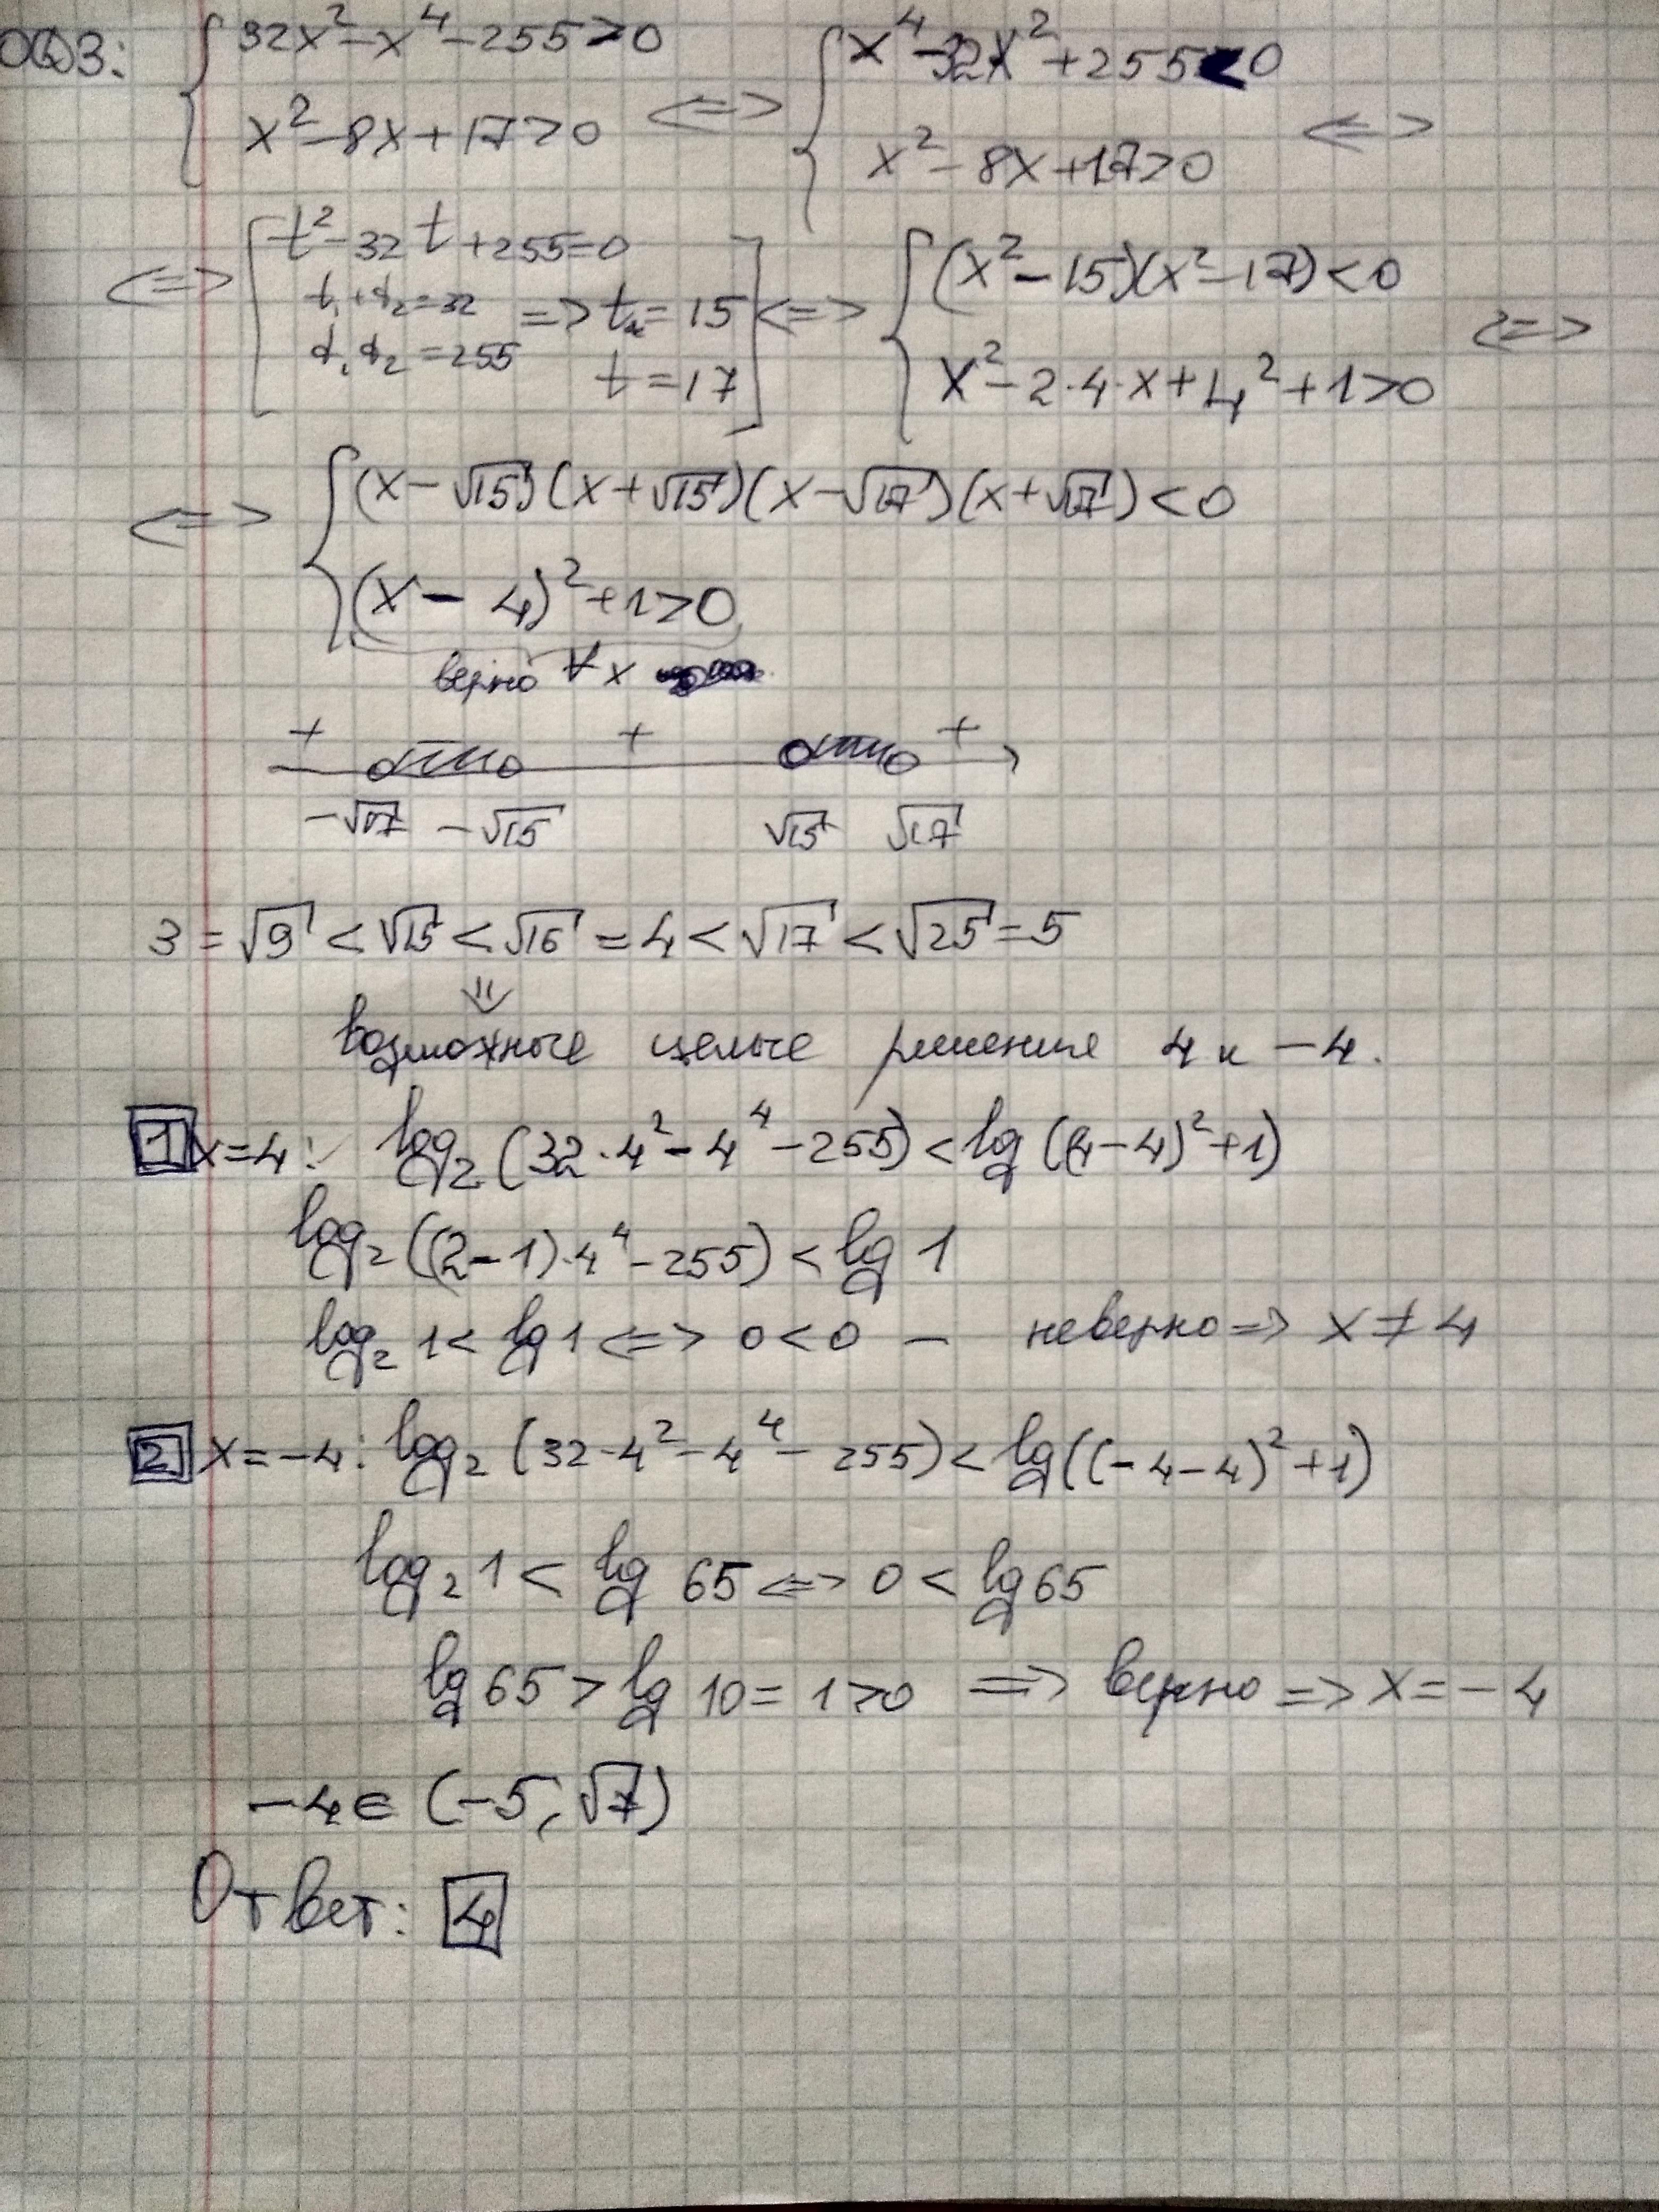 ОДЗ: { 32x² - x⁴ - 255 > 0 <=> { x⁴ - 32x² + 255 < 0 <=>
x² - 8x + 17 > 0 x² - 8x + 17 > 0
<=> [ t² - 32t + 255 = 0 <=> { (x² - 15)(x² - 17) < 0 <=>
t₁ + t₂ = 32 => t = 15
t₁ t₂ = 255 t = 17 ] x² - 2·4·x + 4² + 1 > 0
<=> { (x - √15)(x + √15)(x - √17)(x + √17) < 0
(x - 4)² + 1 > 0
верно ∀x
+ + +
-√17 -√15 √15 √17
3 = √9 < √15 < √16 = 4 < √17 < √25 = 5
⇓
возможные целые решения 4 и -4.
1 x = 4: log₂(32·4² - 4⁴ - 255) < lg((4 - 4)² + 1)
log₂((2 - 1)·4⁴ - 255) < lg 1
log₂ 1 < lg 1 <=> 0 < 0 — неверно => x ≠ 4
2 x = -4: log₂(32·4² - 4⁴ - 255) < lg((-4 - 4)² + 1)
log₂ 1 < lg 65 <=> 0 < lg 65
lg 65 > lg 10 = 1 > 0 => верно => x = -4
-4 ∈ (-5, √7)
Ответ: 4